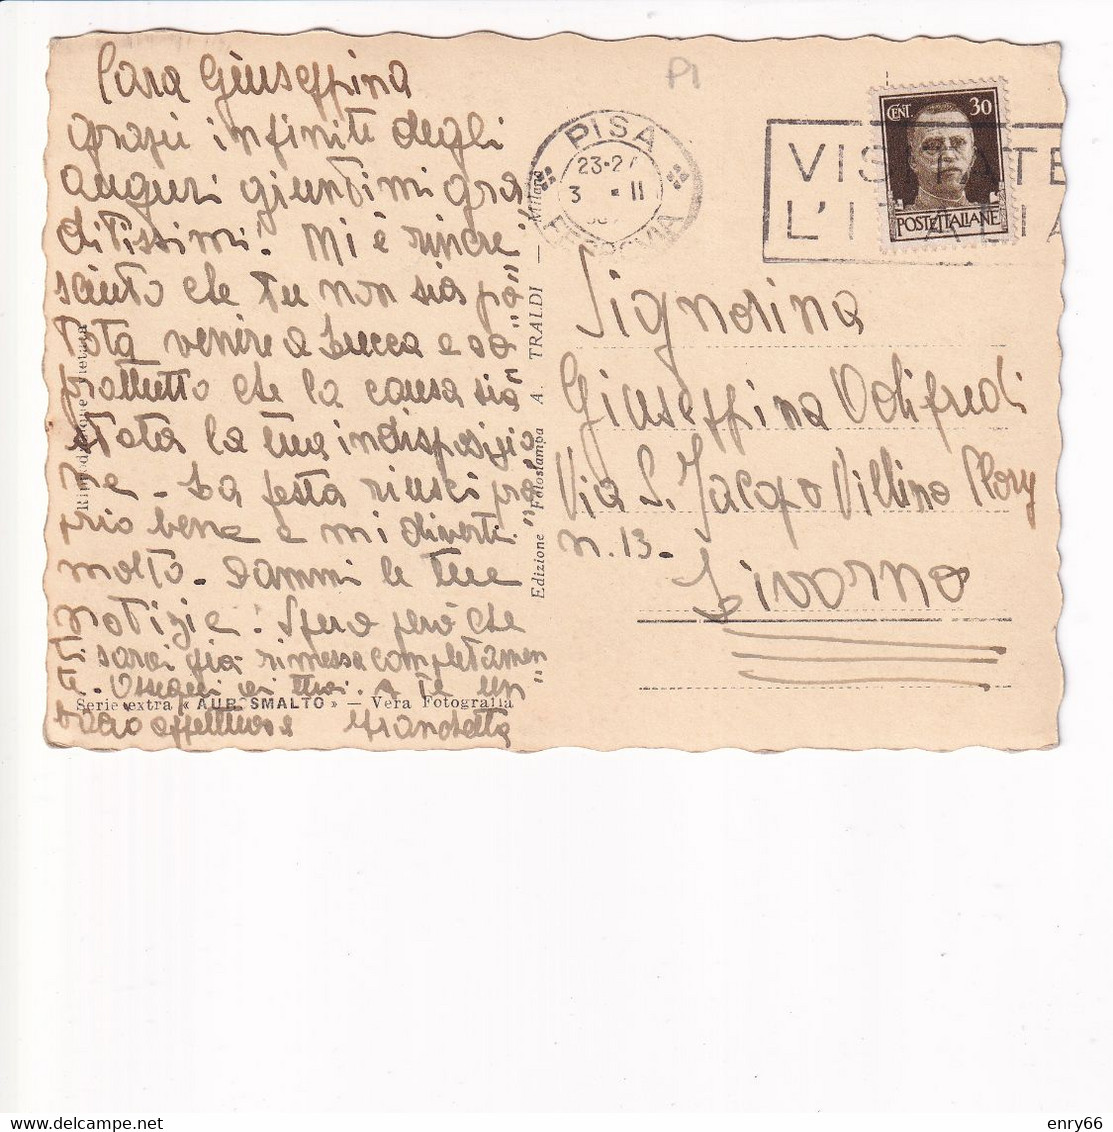 Cara Giuseppina
grazie infinite degli
auguri giuntimi gra
ditissimi. Mi è rincre"
sciuto che tu non sia po"
tuta venire a Lucca e so"
prattutto che la causa sia
stata la tua indisposizio
ne - La festa riuscì pro"
prio bene e mi divertii
molto - Dammi le tue
notizie. Spero però che
ti sarai già rimessa completamen"
te. Ossequi ai tuoi. A te un
bacio affettuoso
Rip
Edizione Fotostampa A. TRALDI — Milano
Serie extra « AUR SMALTO » — Vera Fotografia
P1
PISA
23-2
3 - II
FERROVIA
VISITATE
L'ITALIA
CENT. 30
POSTE ITALIANE
Signorina
Giuseppina Odifredi
Via S. Jacopo Villino
n. 13 -
Livorno
enry66